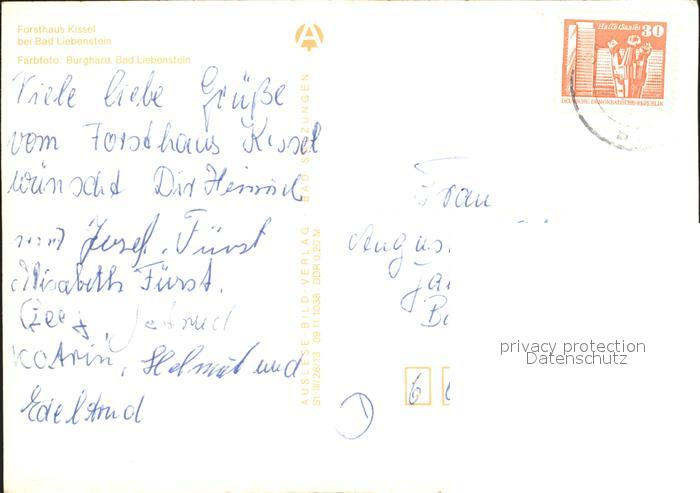 Forsthaus Kissel
bei Bad Liebenstein
Farbfoto: Burghard, Bad Liebenstein
Viele liebe Grüße
vom Forsthaus Kissel
wünscht Dir Heinrich
und Josef, Fürst
Elisabeth Fürst.
Georg,
Katrin, Helmut und
Edeltrud
AUSLESE-BILD-VERLAG · BAD SALZUNGEN
S1-III/26/13 09 11 1038 DDR 0,20 M
Halle (Saale) 30
DEUTSCHE DEMOKRATISCHE REPUBLIK
Frau
6
privacy protection
Datenschutz